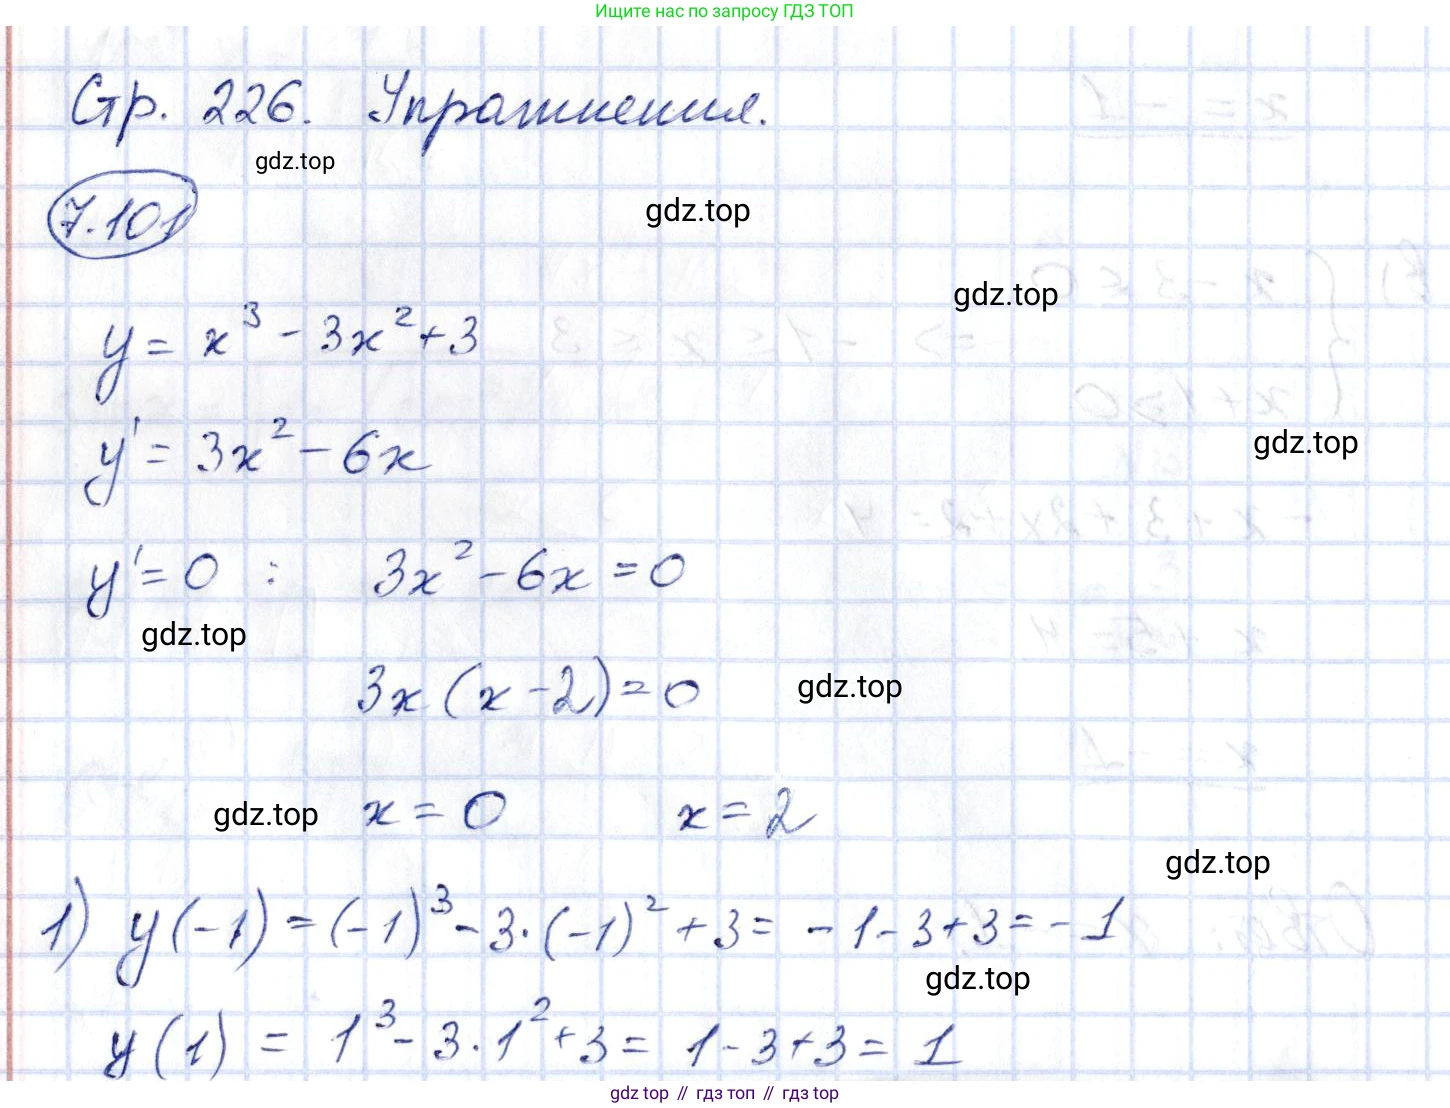 Ищите нас по запросу ГДЗ ТОП
Стр. 226. Упражнения.
gdz.top
7.101
gdz.top
gdz.top
y = x³ - 3x² + 3
gdz.top
y' = 3x² - 6x
y' = 0 : 3x² - 6x = 0
gdz.top
3x (x - 2) = 0
gdz.top
gdz.top
x = 0 x = 2
gdz.top
1) y(-1) = (-1)³ - 3·(-1)² + 3 = -1 - 3 + 3 = -1
gdz.top
y(1) = 1³ - 3·1² + 3 = 1 - 3 + 3 = 1
gdz top // гдз топ // gdz top